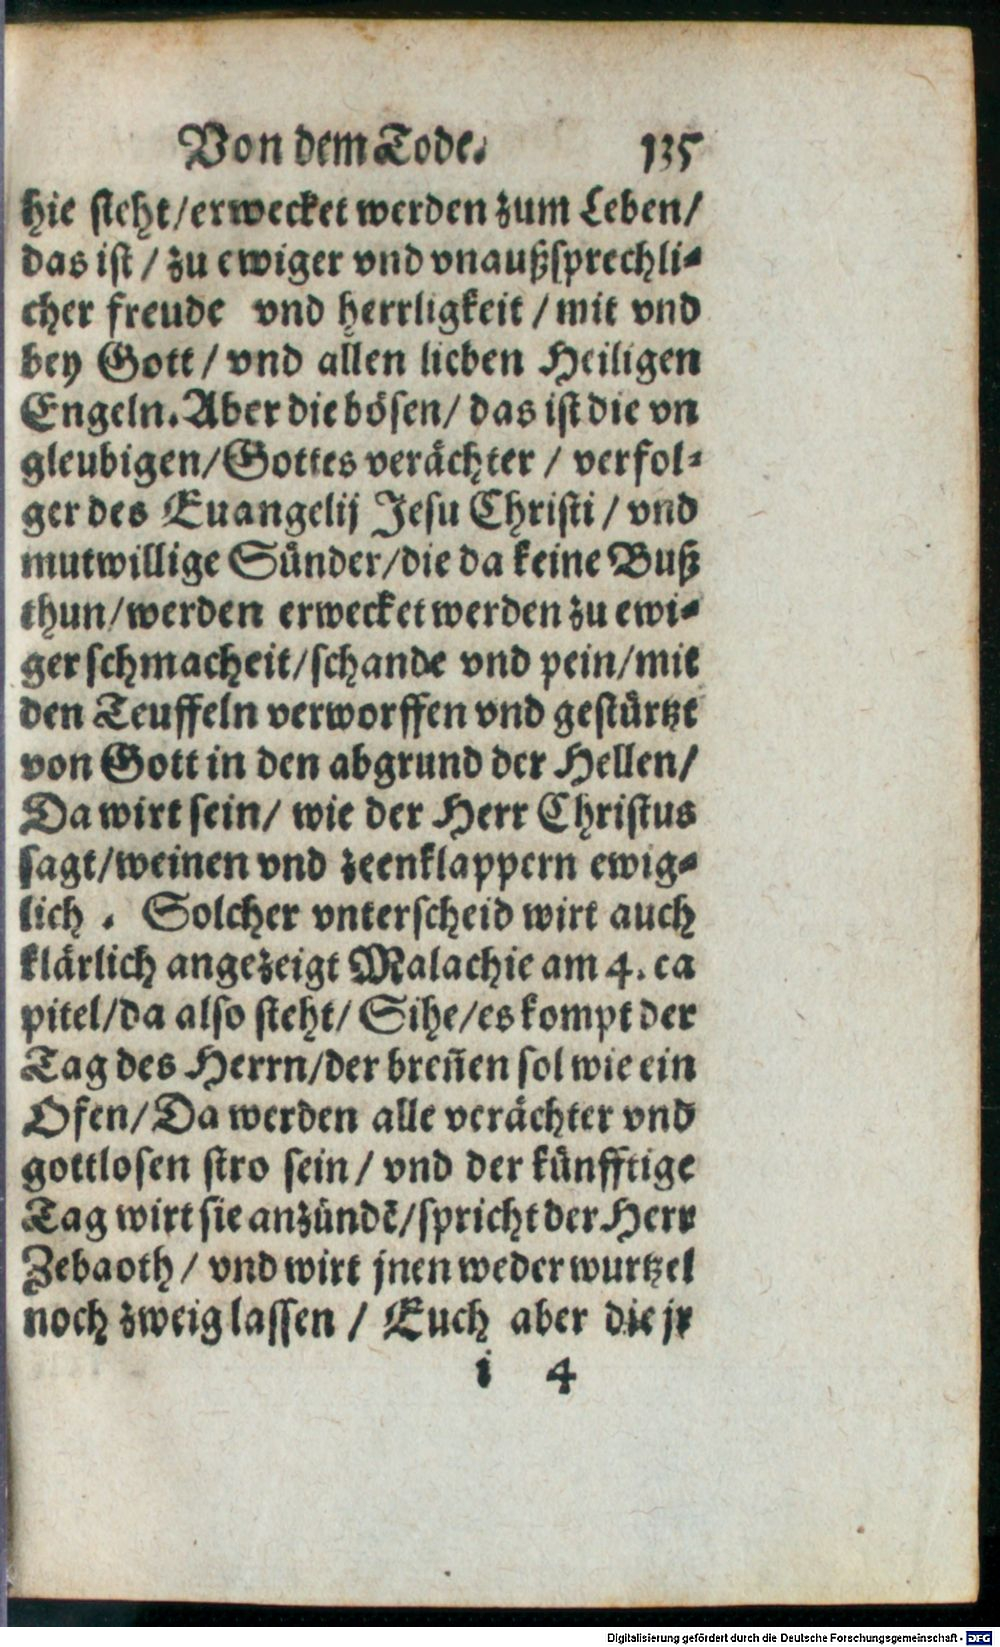 Von dem Tode. 135
hie steht/erwecket werden zum Leben/
das ist / zu ewiger vnd vnaußsprechli-
cher freude vnd herrligkeit / mit vnd
bey Gott / vnd allen lieben Heiligen
Engeln. Aber die bösen / das ist die vn
gleubigen/Gottes verächter / verfol-
ger des Euangelij Jesu Christi / vnd
mutwillige Sünder/die da keine Buß
thun/werden erwecket werden zu ewi-
ger schmacheit/schande vnd pein/mit
den Teuffeln verworffen vnd gestürtzt
von Gott in den abgrund der Hellen/
Da wirt sein/ wie der Herr Christus
sagt/weinen vnd zeenklappern ewig-
lich . Solcher vnterscheid wirt auch
klärlich angezeigt Malachie am 4. ca
pitel/da also steht/ Sihe/es kompt der
Tag des Herrn/der breñen sol wie ein
Ofen/Da werden alle verächter vnd
gottlosen stro sein / vnd der künfftige
Tag wirt sie anzündē/spricht der Herr
Zebaoth / vnd wirt jnen weder wurtzel
noch zweig lassen / Euch aber die jr
i 4
Digitalisierung gefördert durch die Deutsche Forschungsgemeinschaft - DFG